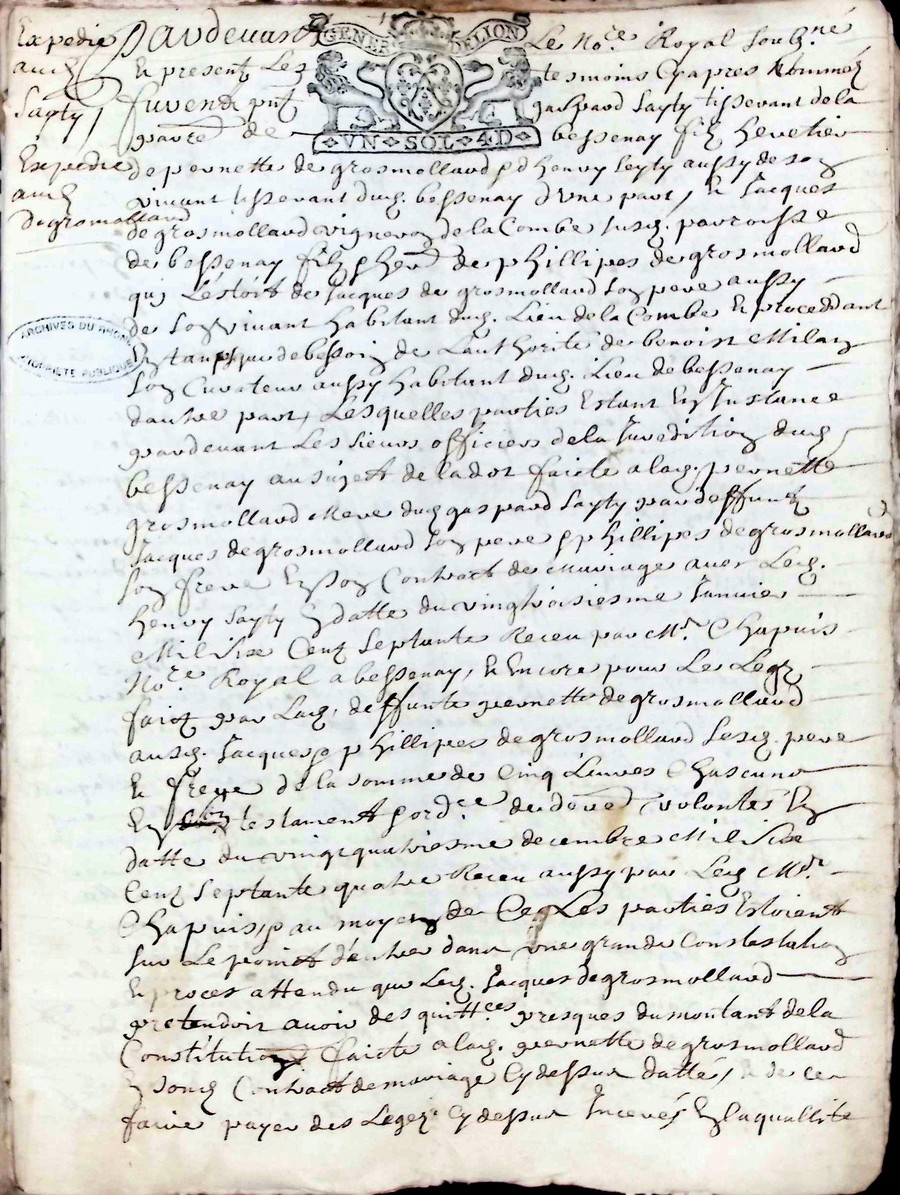 Expedie
aud
Sayty
Expedie
aud
Degromolland
GENER DE LION
VN SOL 4D
ARCHIVES DU RHONE
PROPRIÉTÉ PUBLIQUE
Pardevant Le No.re Royal soub.né
Et presentz Les tesmoins Cyapres Nommez
furent pntz gaspard sayty tisserant de la
parre de bessenay filz heretier
de pernette de grosmolland & d henry seyty aussy de son
vivant tisserant dud. bessenay d'une part, Et Jacques
de grosmolland vigneron de la Combe susd. parroisse
de bessenay filz & her de phillipes de grosmolland
qui Lestoit de Jacques de grosmolland son pere aussy
de son vivant habitant dud. Lieu de la Combe Et proceddant
En tant que de besoin de Lauthorite de benoist Milan
son Curateur aussy habitant dud. Lieu de bessenay
dautre part, Lesquelles parties Estant En Instance
pardevant Les sieurs officiers de la Juredition dud
bessenay au sujett de la dot faicte a lad. pernette
grosmolland Mere dud gaspard sayty par deffunt
Jacques de grosmolland son pere & phillipes de grosmolland
son frere En son Contract de Mariage avec Led.
henry sayty En datte du vingtroisiesme Janvier
Mil Six Cent Septante Receu par M.e Chapuis
No.re Royal a bessenay, Et Encore pour Les Legz
faict par Lad. deffunte pernette de grosmolland
ausd. Jacques & phillipes de grosmolland Susd. pere
Et frere de la somme de Cinq Livres Chascung
En testament & ord.ce de volonté En
datte du vingt quatriesme decembre Mil Six
Cent Septante quatre Receu aussy par Led M.e
Chapuis & au moyen de Ce Les parties Estoient
sur Le point d'entrer dans une grande Constestation
Et proces attendu que Led. Jacques de grosmolland
pretendoit avoir des quitt.ces presques du montant de la
Constitution faicte a lad. pernette de grosmolland
En sond Contract de mariage Cy dessus datté, Et de ce
faire payer des Legz Cy dessus Incerés En la quallité